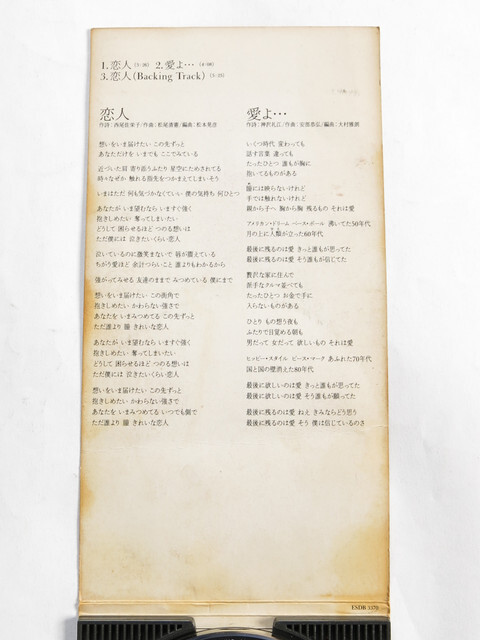 1.恋人 2.愛よ…
3.恋人(Backing Track)
恋人
作詞：西尾佐栄子/作曲：松尾清憲/編曲：松本晃彦
想いをいま届けたい この先ずっと
あなただけを いまでも ここでみている
近づいた肩 寄り添うふたり 星空にためされてる
時々なぜか 触れる指先をつかまえてしまいそう
いまはただ 何も気づかなくていい 僕の気持ち 何ひとつ
あなたが いま望むなら いますぐ強く
抱きしめたい 奪ってしまいたい
どうして 困らせるほど つのる想いは
ただ僕には 泣きたいくらい恋人
泣いているのに微笑まないで 唇が震えている
ちがう愛ほど 余計つらいこと 誰よりもわかるから
強がってみせる 友達のままで みつめている 僕にまで
想いをいま届けたい この街角で
抱きしめたい かわらない強さで
あなたを いまみつめてる この先ずっと
ただ誰より 瞳 きれいな恋人
あなたが いま望むなら いますぐ強く
抱きしめたい 奪ってしまいたい
どうして 困らせるほど つのる想いは
ただ僕には 泣きたいくらい恋人
想いをいま届けたい この先ずっと
抱きしめたい かわらない強さで
あなたを いまみつめてる いつでも側で
ただ誰より 瞳 きれいな恋人
愛よ…
作曲：安部恭弘/編曲：大村雅朗
いくつ時代 変わっても
話す言葉 違っても
たったひとつ 誰もが胸に
抱いてるものがある
瞳には映らないけれど
手では触れないけれど
親から子へ 胸から胸 残るもの それは愛
アメリカン・ドリーム ベース・ボール 沸いてた50年代
月の上に人類が立った60年代
最後に残るのは愛 きっと誰もが思ってた
最後に残るのは愛 そう誰もが信じてた
贅沢な家に住んで
派手なクルマ並べても
たったひとつ お金で手に
入らないものがある
ひとり もの想う夜も
ふたりで目覚める朝も
男だって 女だって 欲しいもの それは愛
ヒッピー・スタイル ピース・マーク あふれた70年代
国と国の壁消えた80年代
最後に欲しいのは愛 きっと誰もが思ってた
最後に欲しいのは愛 そう誰もが願ってた
最後に残るのは愛 ねえ きみならどう思う
最後に残るのは愛 そう 僕は信じているのさ
ESDB 3170